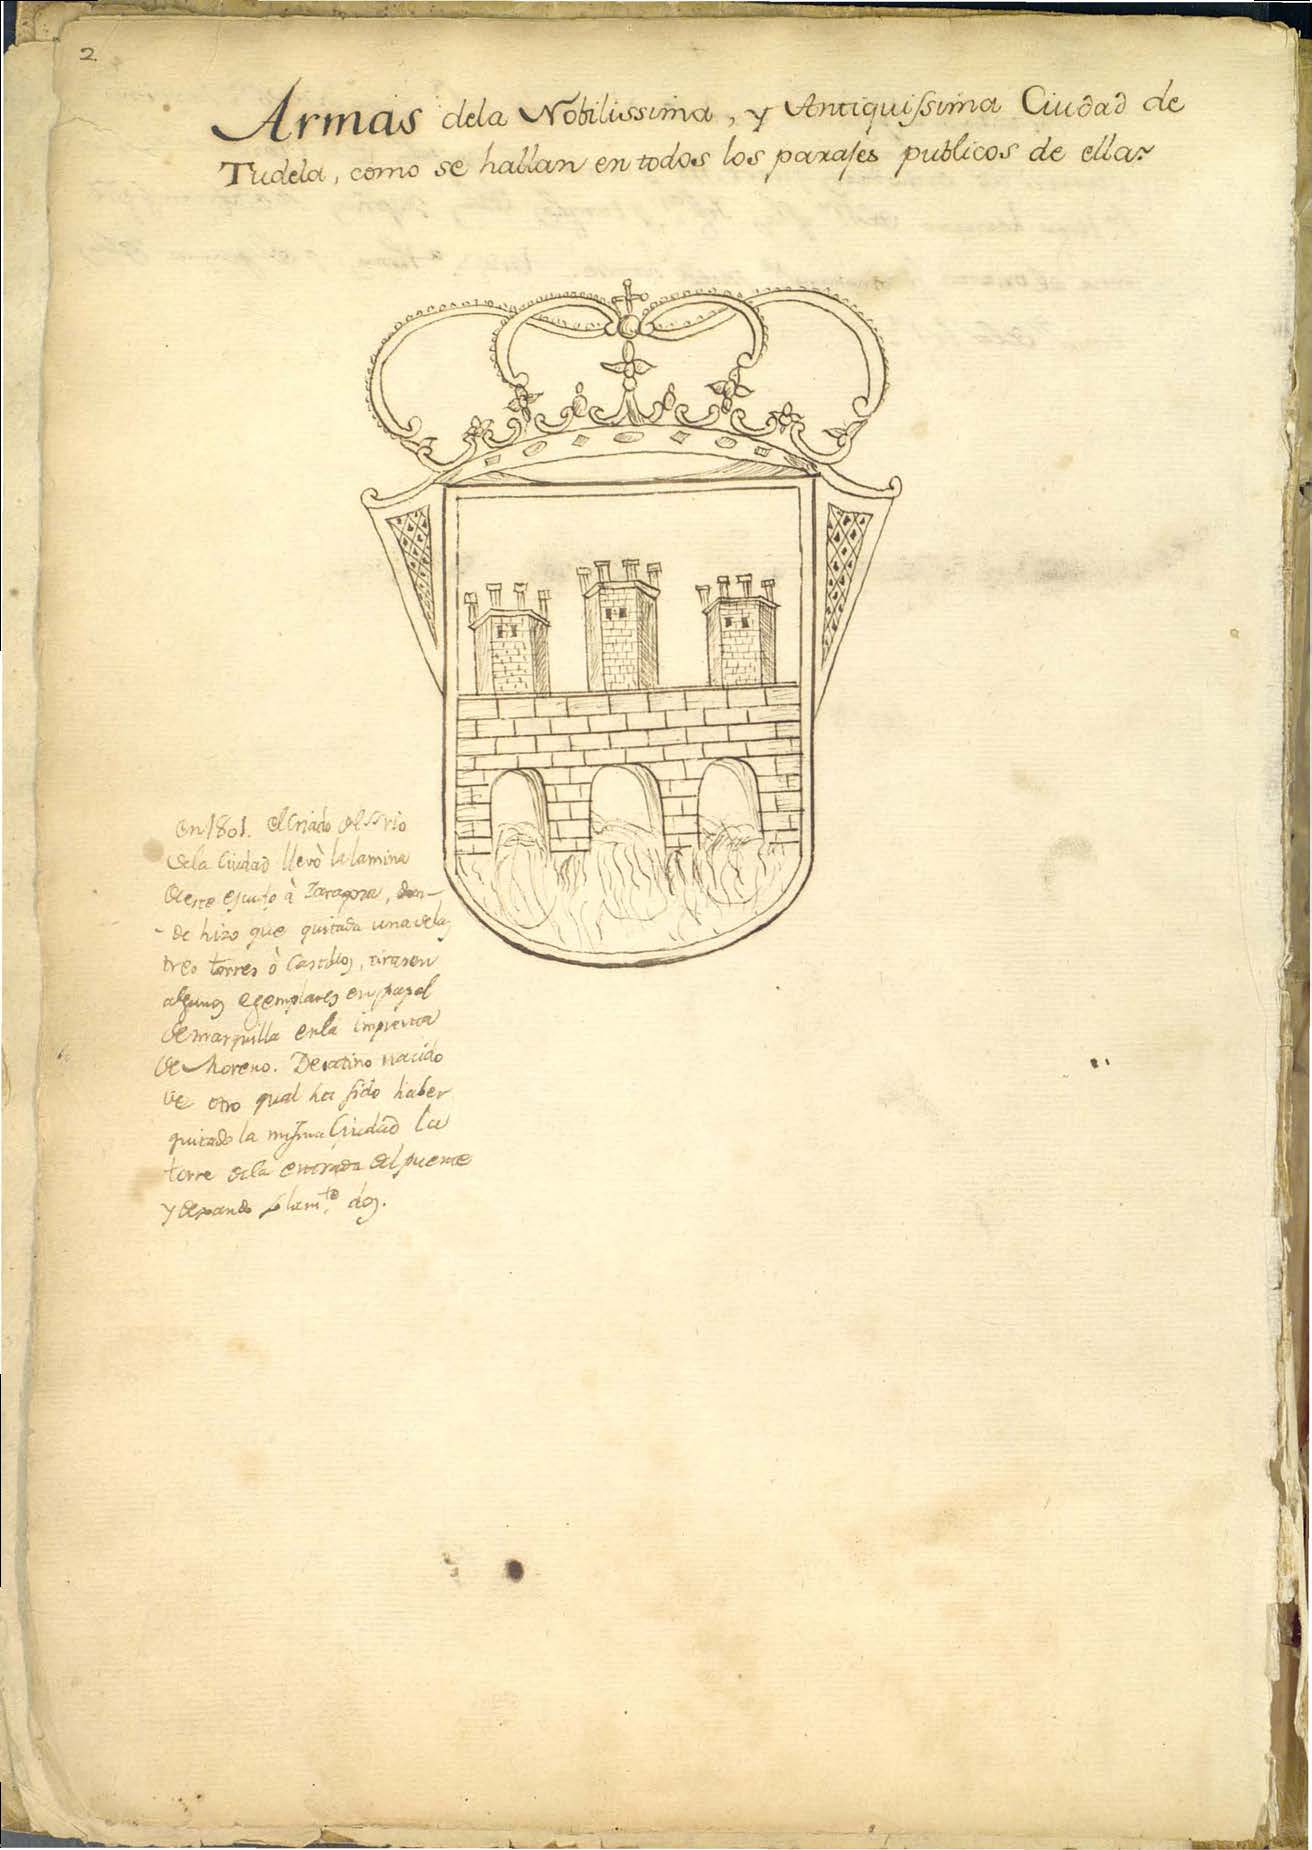 2
Armas dela Nobilissima, y Antiquissima Ciudad de
Tudela, como se hallan en todos los parajes publicos de ella.
En 1801. el Criado del Srio
dela Ciudad llevò la lamina
de este escudo à Zaragoza, don-
de hizo que quitada una delas
tres torres ò Castillos, tirasen
algunos egemplares en papel
de marquilla en la imprenta
de Moreno. Desatino nacido
de otro qual ha sido haber
quitado la misma Ciudad la
torre dela entrada del puente
y dexando solamte dos.